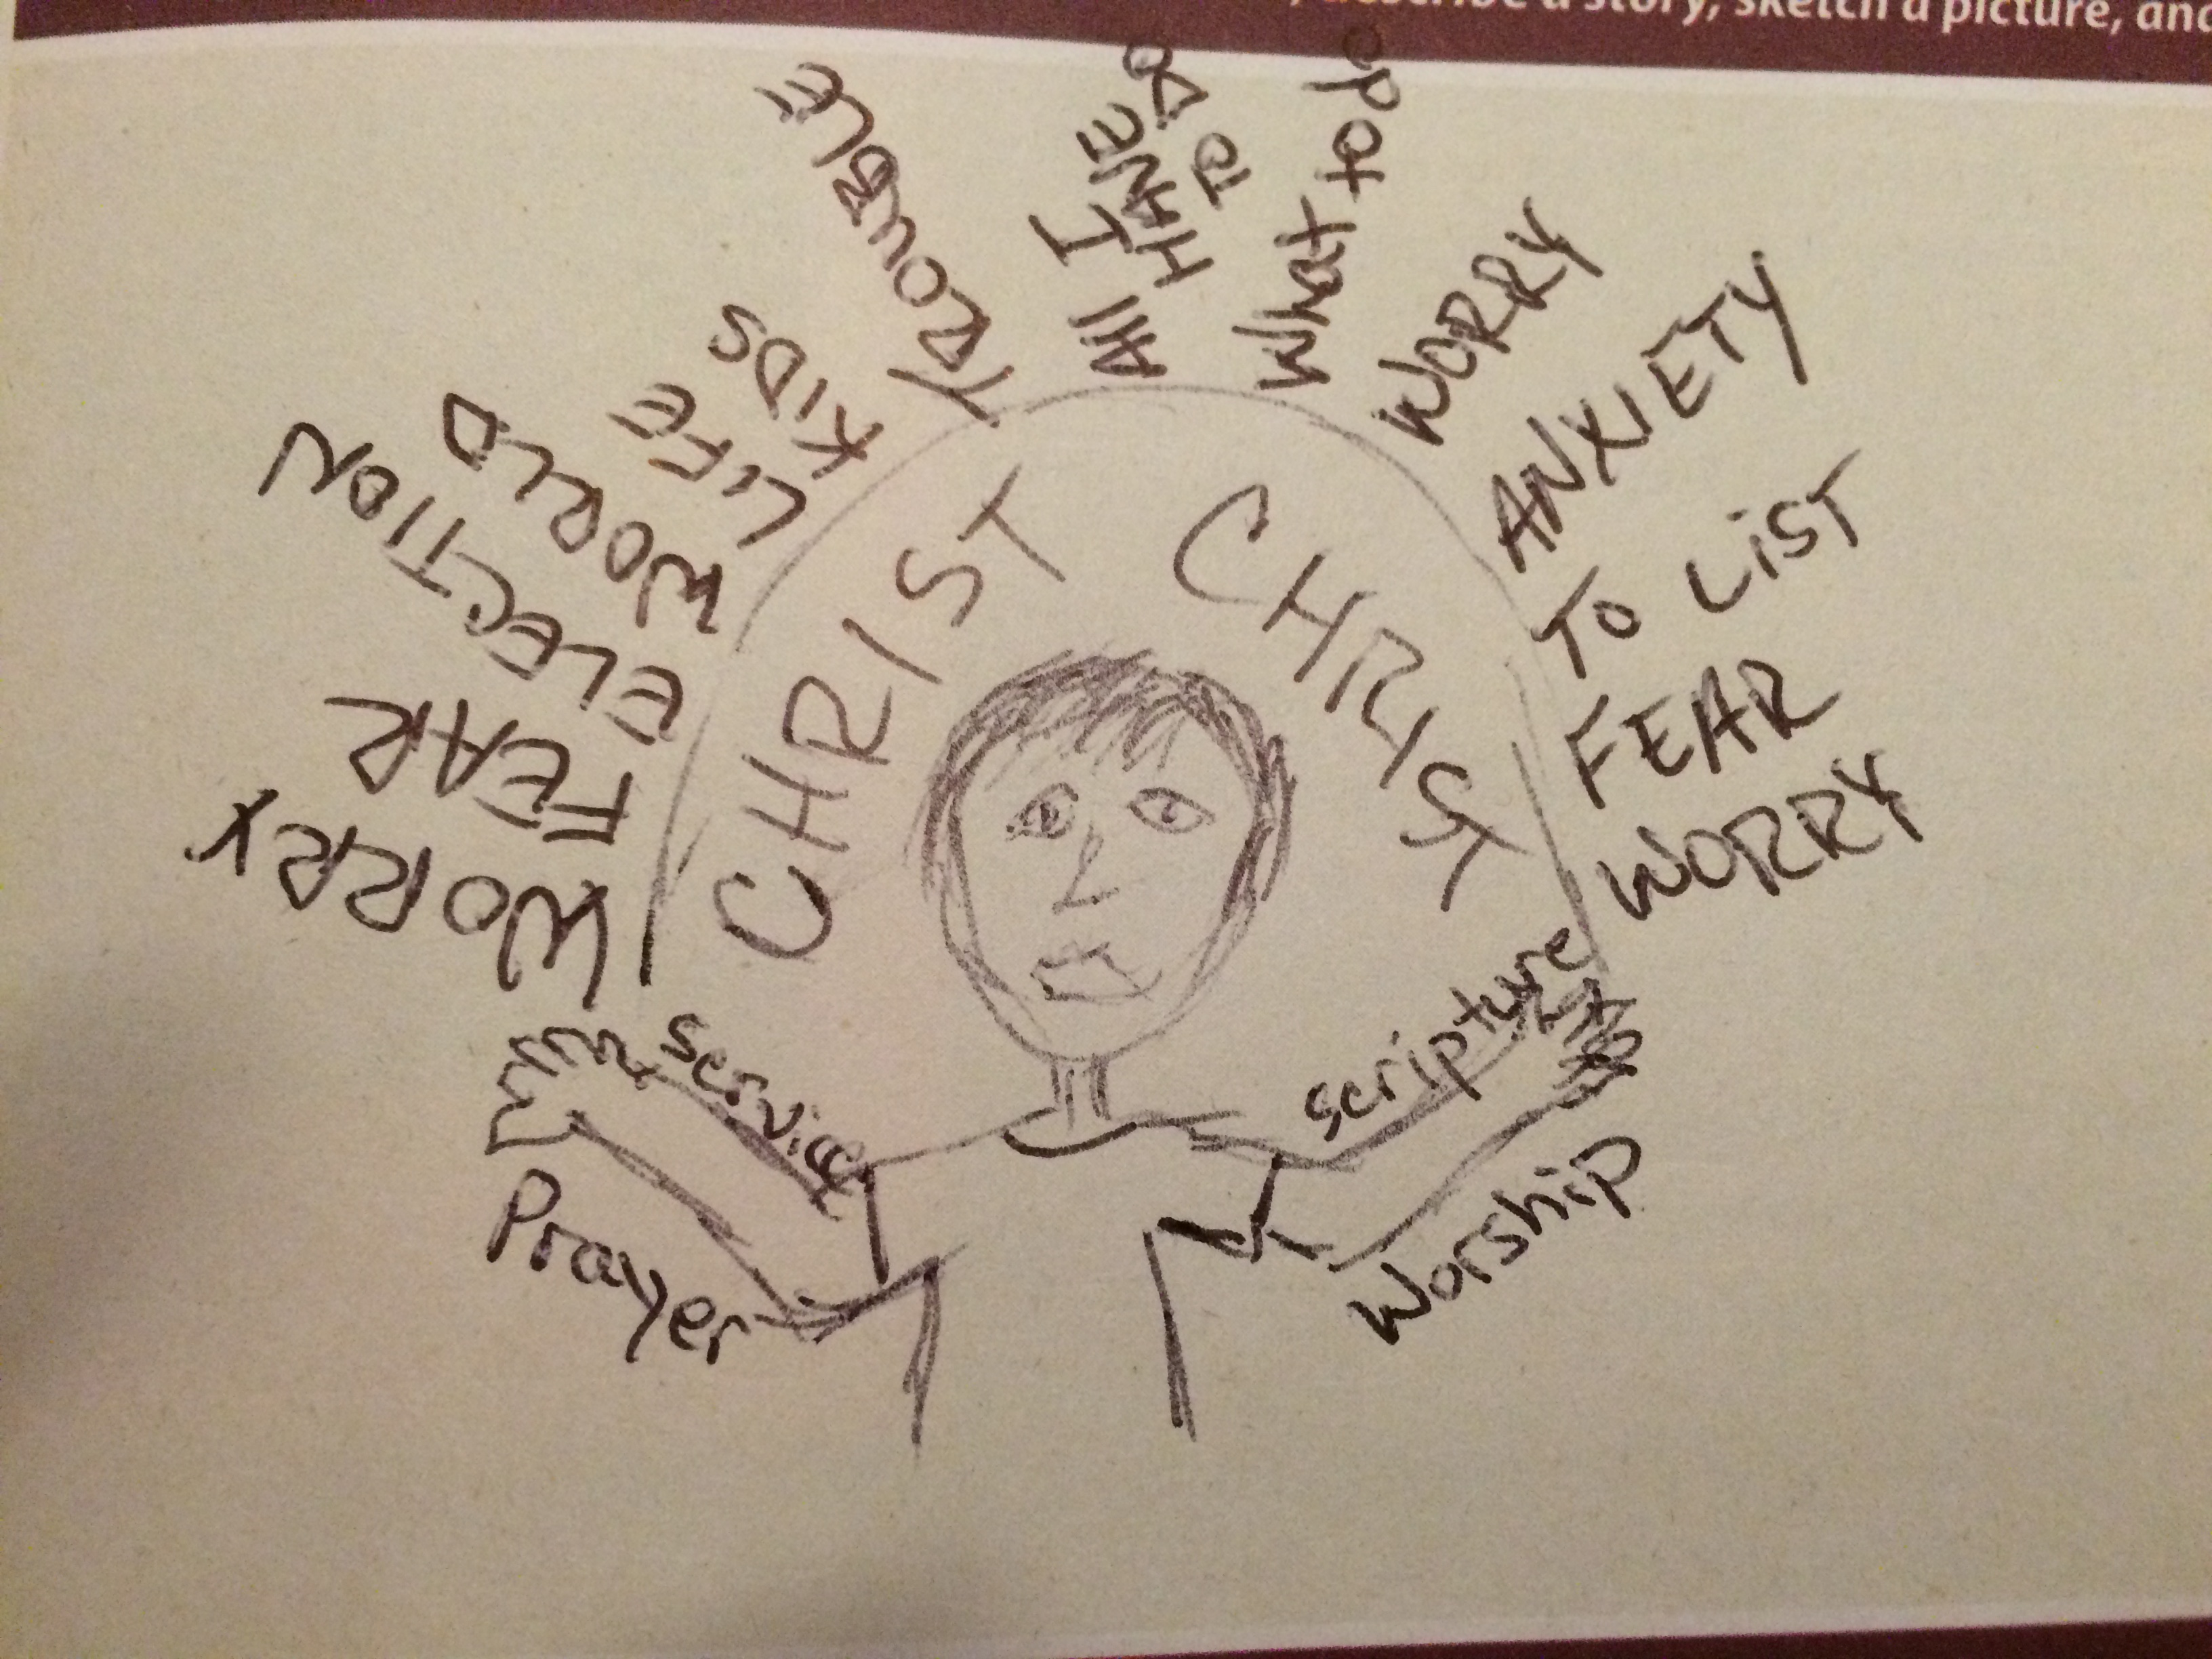 describe a story, sketch a picture, and
WORRY
FEAR
ELECTION
WORLD
LIFE
KIDS
TROUBLE
All I
HAVE
TO
DO
What to do
WORRY
ANXIETY
TO LIST
FEAR
WORRY
CHRIST CHRIST
Service
Prayer
Scripture
Worship